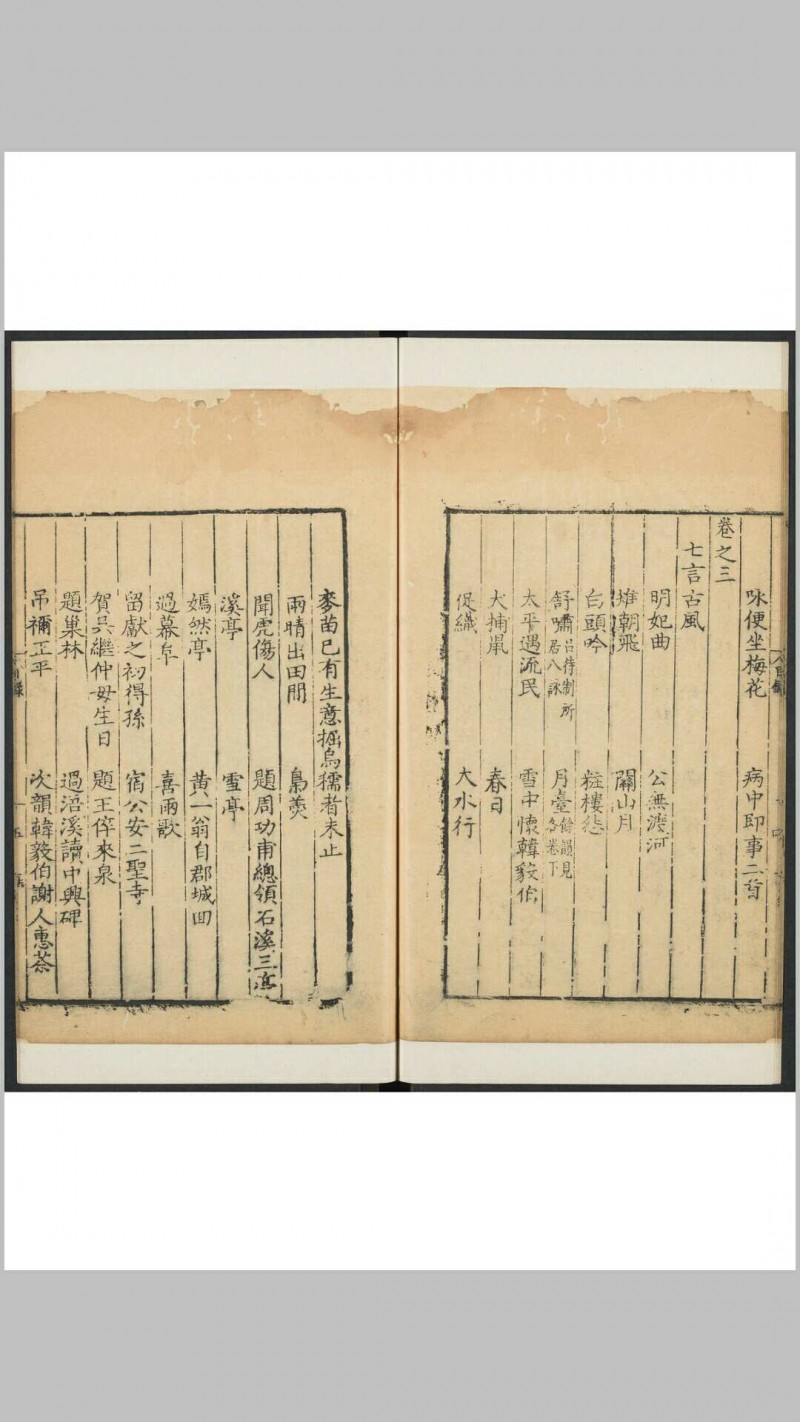 咏便坐梅花 病中即事二首
卷之三
七言古風
明妃曲 公無渡河
雉朝飛 關山月
白頭吟 粧樓怨
舒嘯呂待制所居八詠 月臺餘韻見各卷下
太平遇流民 雪中懷韓毅伯
犬捕鼠 春日
促織 大水行
麥苗已有生意掘烏𥠊者未止
雨晴出田間 鳧羮
聞虎傷人 題周功甫總領石溪三亭
溪亭 雪亭
嫣然亭 黄一翁自郡城回
過幕阜 喜雨歌
留獻之初得孫 宿公安二聖寺
賀吳繼仲母生日 題王倅來泉
題巢林 過浯溪讀中興碑
吊禰正平 次韻韓毅伯謝人惠茶